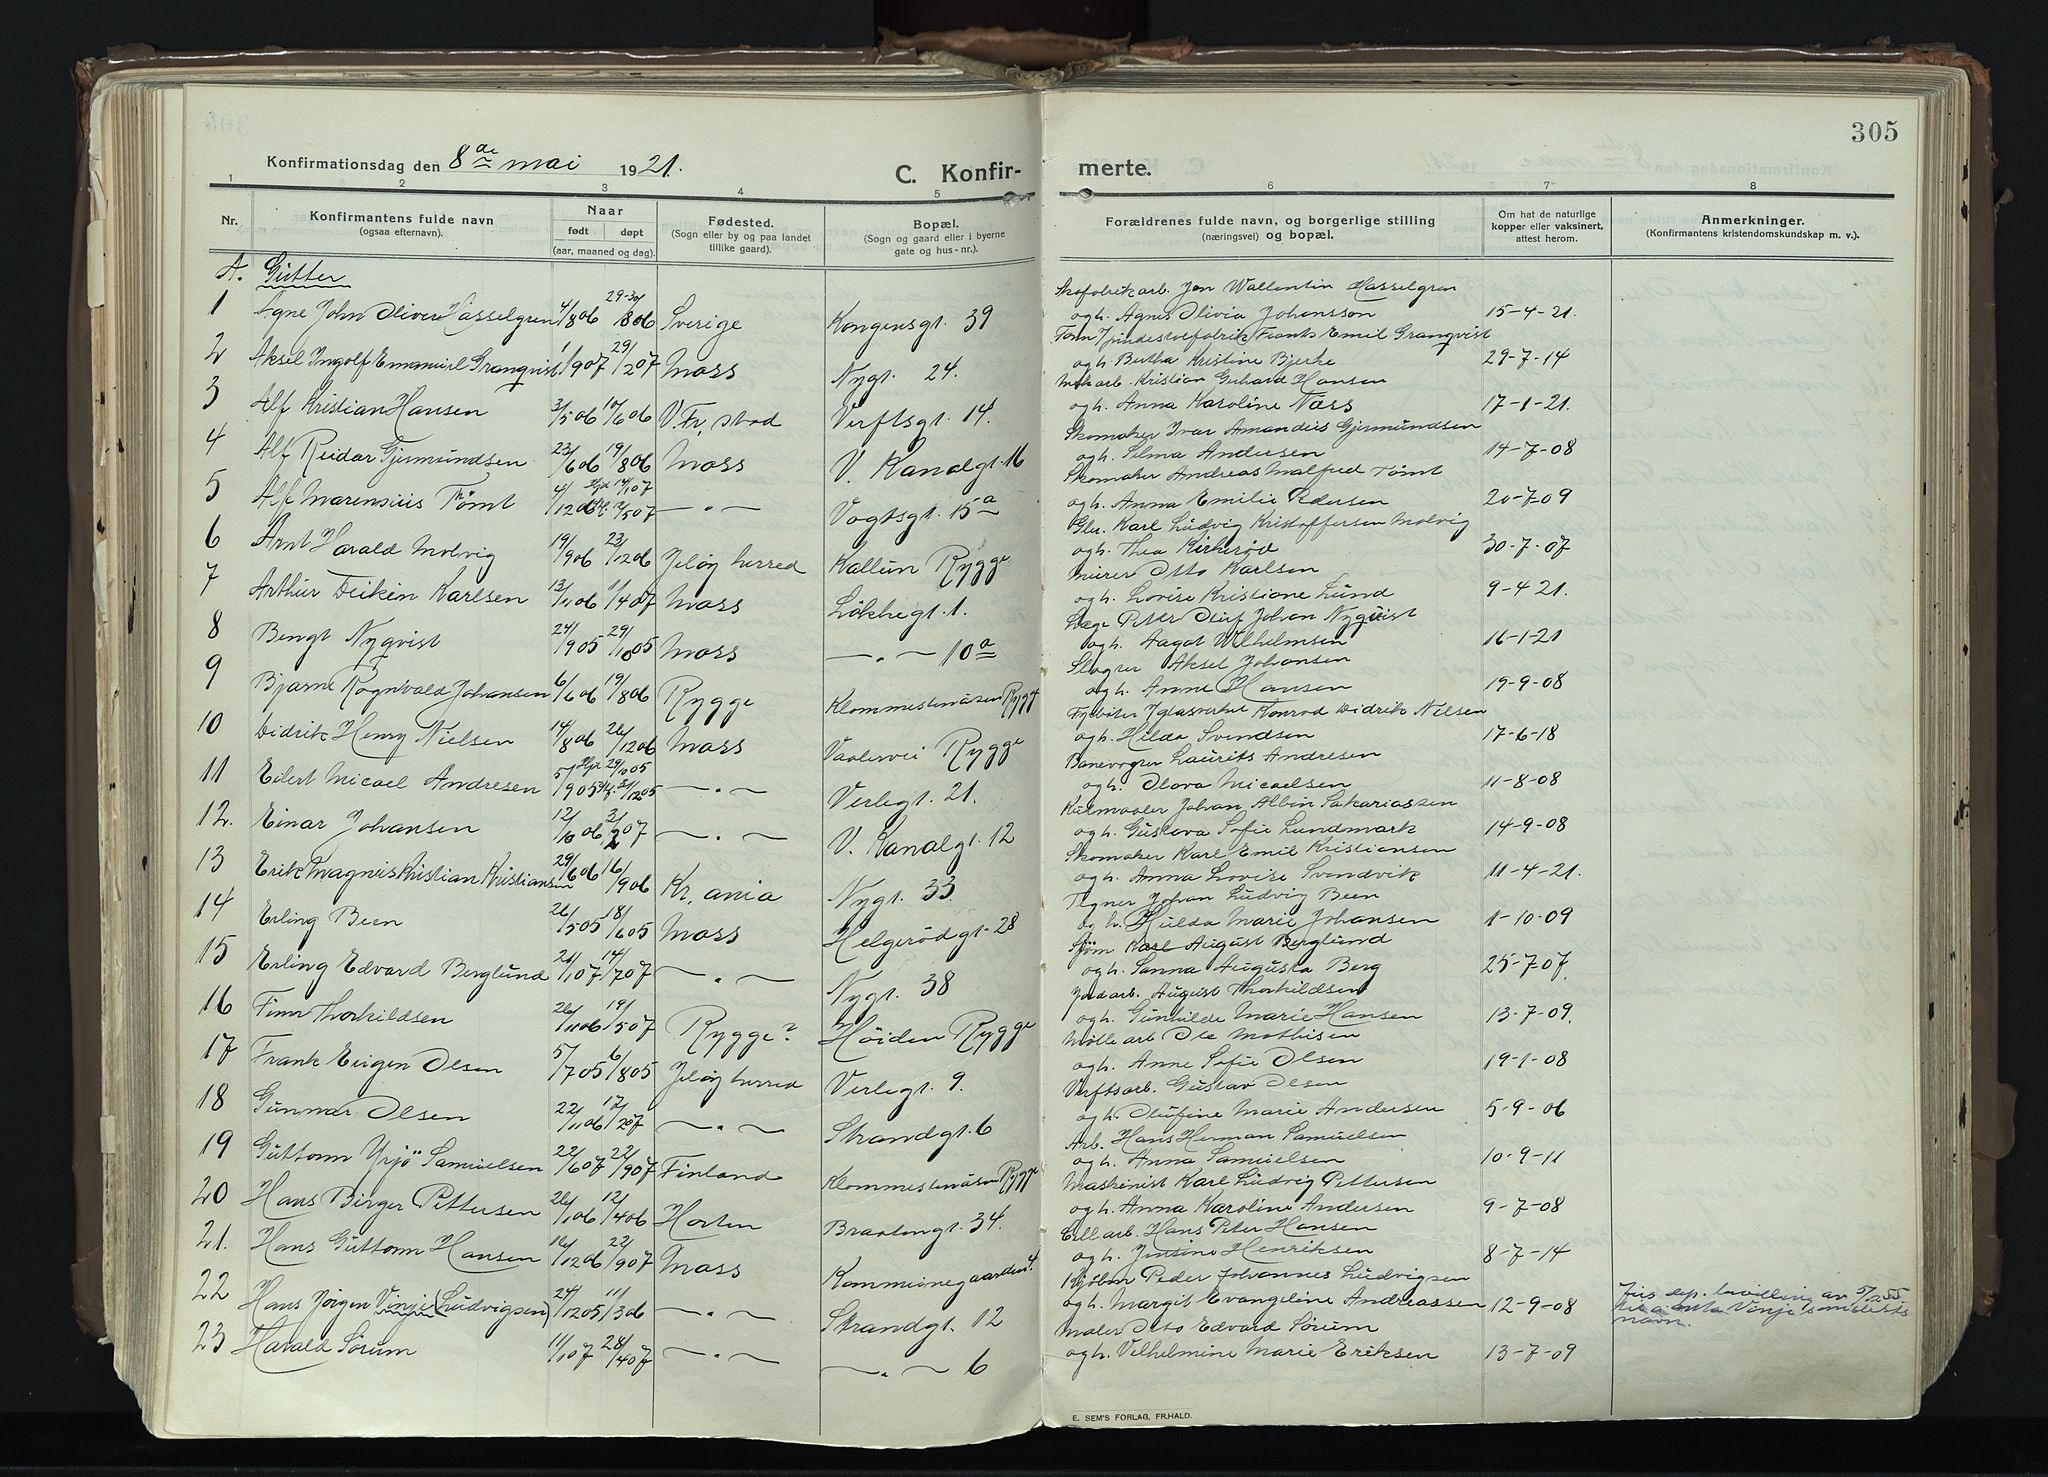 305
Konfirmationsdag den 8de mai 1921.
C. Konfirmerte.
1 2 3 4 5 6 7 8
Nr. Konfirmantens fulde navn (ogsaa efternavn). Naar født døpt (aar, maaned og dag). Fødested. (Sogn eller by og paa landet tillike gaard). Bopæl. (Sogn og gaard eller i byerne gate og hus-nr.). Forældrenes fulde navn, og borgerlige stilling (næringsvei) og bopæl. Om hat de naturlige kopper eller vaksinert, attest herom. Anmerkninger. (Konfirmantens kristendomskundskap m. v.).
A. Gutter
Skofabrikarb. Jon Wallentin Hasselgren
1 Agne John Oliver Hasselgren 4/8 06 29-30/8 06 Sverige Kongensgt. 39 og h. Agnes Olivia Johansson 15-4-21.
Frants Emil Granqvist
2 Aksel Ingolf Emanuel Granqvist 1/9 07 29/2 07 Moss Nygt. 24. og h. Bertha Kristine Bjerke 29-7-14
Mek arb. Kristian Gerhard Hansen
3 Alf Kristian Hansen 3/5 06 17/6 06 V. Fr. stad Verftsgt. 14. og h. Anna Karoline Næss 17-1-21.
Skomaker Ivar Amandus Gjermundsen
4 Alf Reidar Gjermundsen 23/6 06 19/8 06 Moss V. Kanalgt. 16 og h. Selma Andersen 14-7-08
Skomaker Andreas Malfred Tømt
5 Alf Marensius Tømt 4/12 06 14/1 07 12/5 07 — " — Vogtsgt. 15a og h. Anna Emilie Pedersen 20-7-09
Karl Ludvig Kristoffersen Molvig
6 Arnt Harald Molvig 19/9 06 23/12 06 Jeløy herred Kallum Rygge og h. Thea Kirkerød 30-7-07
Murer Otto Karlsen
7 Arthur Karlsen 13/11 06 1/4 07 Moss Løkkegt. 1. og h. Lovise Kristiane Lund 9-4-21.
Læge Peter Oluf Johan Nyqvist
8 Bengt Nyqvist 24/9 05 29/10 05 Moss — " — 10a og h. Aagot Wilhelmsen 16-1-21
Aksel Johansen
9 Bjarne Rognvald Johansen 6/6 06 19/8 06 Rygge Klommestenåsen Rygge og h. Anne Hansen 19-9-08
Fyrbøter v/glasverket Konrad Didrik Nilsen
10 Didrik Henry Nielsen 14/8 06 26/12 06 Moss Vaalervei Rygge og h. Hilda Svendsen 17-6-18
Banevogter Laurits Andresen
11 Eilert Micael Andresen 5/9 05 29/10 05 31/12 05 — " — Verlegt. 21. og h. Olava Micaelsen 11-8-08
Johan Albin Sakariassen
12. Einar Johansen 12/10 06 3/2 07 — " — V. Kanalgt. 12 og h. Gustava Sofie Lundmark 14-9-08
Skomaker Karl Emil Kristiansen
13 Erik Magnus Kristian Kristiansen 29/6 06 16/9 06 Kr. ania Nygt. 33. og h. Anna Lovise Svendvik 11-4-21.
Tegner Johan Ludvig Been
14 Erling Been 26/5 05 18/6 05 Moss Helgerødgt. 28 og h. Hulda Marie Johansen 1-10-09
Sjøm Karl August Berglund
15 Erling Edvard Berglund 26/1 07 14/7 07 — " — Nygt. 38 og h. Sanna Augusta Berg 25-7-07.
Jordarb. August Thorkildsen
16 Finn Thorkildsen 26/11 06 19/5 07 Rygge? Høiden Rygge og h. Gunhilde Marie Hansen 13-7-09.
Mølle arb Ole Mathisen
17 Frank Eugen Olsen 5/7 05 6/8 05 Jeløy herred Verlegt. 9. og h. Anne Sofie Olsen 19-1-08
Verftsarb. Gustav Olsen
18 Gunnar Olsen 22/11 06 17/2 07 — " — Strandgt. 6 og h. Olufine Marie Andersen 5-9-06
Arb. Hans Herman Samuelsen
19 Guttorm Yrjö Samuelsen 22/6 07 22/9 07 Finland Klommestenåsen Rygge og h. Anna Samuelsen 10-9-11
Maskinist Karl Ludvig Pettersen
20 Hans Birger Pettersen 26/1 06 12/4 06 Horten Braatengt. 34. og h. Anna Karoline Andersen 9-7-08
Cell arb. Hans Peter Hansen
21. Hans Guttorm Hansen 16/12 06 22/9 07 Moss Kommunegaarden og h. Jensine Henriksen 8-7-14
Kjøbm Peder Johannes Ludvigsen
22 Hans Jørgen Vinje (Ludvigsen) 24/12 05 11/3 06 — " — Strandgt. 12 og h. Margit Evangeline Andreassen 12-9-08 Jus dep. bevilling av 5/12 55 til å anta Vinje som slekts navn.
Maler Otto Edvard Sørum
23 Harald Sørum 11/1 07 28/4 07 — " — — " — 6 og h. Vilhelmine Marie Eriksen 13-7-09
E. SEM'S FORLAG, FR.HALD.